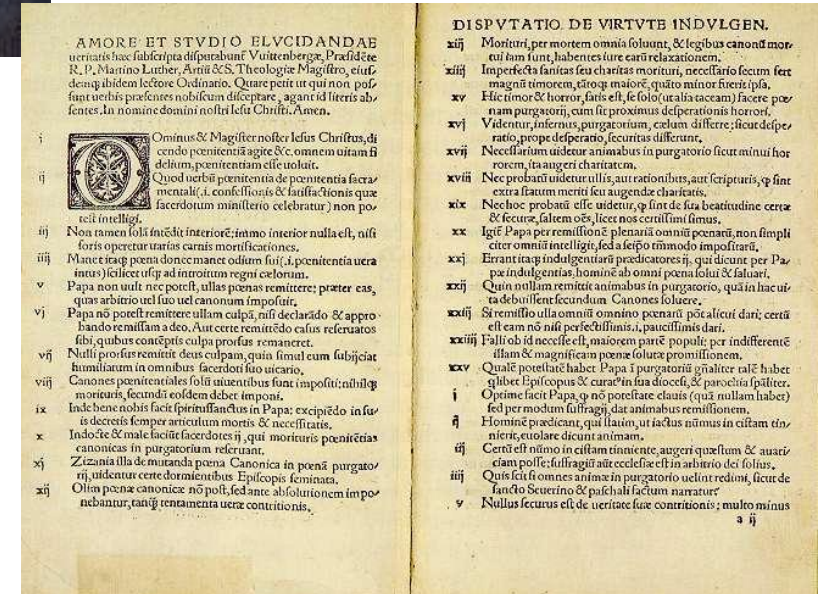 AMORE ET STVDIO ELVCIDANDAE
ueritatis hæc subscripta disputabunt̃ Vuittenbergæ, Præsidẽte
R. P. Martino Luther, Artiũ & S. Theologiæ Magistro, eius⸗
demq; ibidem lectore Ordinatio. Quare petit ut qui non pos⸗
sunt uerbis præsentes nobiscum disceptare, agant id literis ab⸗
sentes. In nomine domini nostri Iesu Christi. Amen.
i DOminus & Magister noster Iesus Christus, di
cendo pœnitentiã agite &c. omnem uitam fi
delium, pœnitentiam esse uoluit.
ij Quod uerbũ pœnitentia de pœnitentia sacra⸗
mentali (.i. confessionis & satisfactionis quæ
sacerdotum ministerio celebratur) non po⸗
test intelligi.
iij Non tamen solã intẽdit interiorẽ: immo interior nulla est, nisi
foris operetur uarias carnis mortificationes.
iiij Manet itaq; pœna donec manet odium sui (.i. pœnitentia uera
intus) scilicet usq; ad introitum regni cælorum.
v Papa non uult nec potest, ullas pœnas remittere: præter eas,
quas arbitrio uel suo uel canonum imposuit.
vj Papa nõ potest remittere ullam culpã, nisi declarãdo & appro⸗
bando remissam a deo. Aut certe remittẽdo casus reseruatos
sibi, quibus contẽptis culpa prorsus remaneret.
vij Nulli prorsus remittit deus culpam, quin simul eum subijciat
humiliatum in omnibus sacerdoti suo uicario.
viij Canones pœnitentiales solũ uiuentibus sunt impositi: nihilq;
morituris, secundũ eosdem debet imponi.
ix Inde bene nobis facit spiritussanctus in Papa: excipiẽdo in su⸗
is decretis semper articulum mortis & necessitatis.
x Indocte & male faciũt sacerdotes ij, qui morituris pœnitẽtias
canonicas in purgatorium reseruant.
xj Zizania illa de mutanda pœna Canonica in pœnã purgato⸗
rij, uidentur certe dormientibus Episcopis seminata.
xij Olim pœnæ canonicæ nõ post, sed ante absolutionem impo⸗
nebantur, tanq̃ tentamenta ueræ contritionis.
DISPVTATIO DE VIRTVTE INDVLGEN.
xiij Morituri, per mortem omnia soluunt, & legibus canonũ mor⸗
tui iam sunt, habentes iure earũ relaxationem.
xiiij Imperfecta sanitas seu charitas morituri, necessario secum fert
magnũ timorem, tãtoq; maiorẽ, quãto minor fuerit ipsa.
xv Hic timor & horror, satis est, se solo (ut alia taceam) facere pœ⸗
nam purgatorij, cum sit proximus desperationis horrori.
xvj Videntur, infernus, purgatorium, cælum differre: sicut despe⸗
ratio, prope desperatio, securitas differunt.
xvij Necessarium uidetur animabus in purgatorio sicut minui hor
rorem, ita augeri charitatem.
xviij Nec probatũ uidetur ullis, aut rationibus, aut scripturis, q̃ sint
extra statum meriti seu augendæ charitatis.
xix Nec hoc probatũ esse uidetur, q̃ sint de sua beatitudine certæ
& securæ, saltem oẽs, licet nos certissimi simus.
xx Igit̃ Papa per remissionẽ plenariã omniũ pœnarũ, non simpli
citer omniũ intelligit, sed a seipõ tm̃modo impositarũ.
xxj Errant itaq; indulgentiarũ prædicatores ij, qui dicunt per Pa⸗
pæ indulgentias, hominẽ ab omni pœna solui & saluari.
xxij Quin nullam remittit animabus in purgatorio, quã in hac ui⸗
ta debuissent secundum Canones soluere.
xxiij Si remissio ulla omniũ omnino pœnarũ põt alicui dari; certũ
est eam nõ nisi perfectissimis.i. paucissimis dari.
xxiiij Falli ob id necesse est, maiorem partẽ populi: per indifferentẽ
illam & magnificam pœnæ solutæ promissionem.
xxv Qualẽ potestatẽ habet Papa ĩ purgatoriũ gñaliter talẽ habet
q̃libet Episcopus & curat9 in sua diocesi, & parochia sp̃aliter.
i Optime facit Papa, q̃ nõ potestate clauis (quã nullam habet)
sed per modum suffragij, dat animabus remissionem.
ij Hominẽ prædicant, qui statim, ut iactus nũmus in cistam tin⸗
nierit, euolare dicunt animam.
iij Certũ est nũmo in cistam tinniente, augeri quæstum & auari⸗
ciam posse: suffragiũ aũt ecclesiæ est in arbitrio dei solius.
iiij Quis scit si omnes animæ in purgatorio uelint redimi, sicut de
sancto Seuerino & paschali factum narratur.
v Nullus securus est de ueritate suæ contritionis; multo minus
a ij